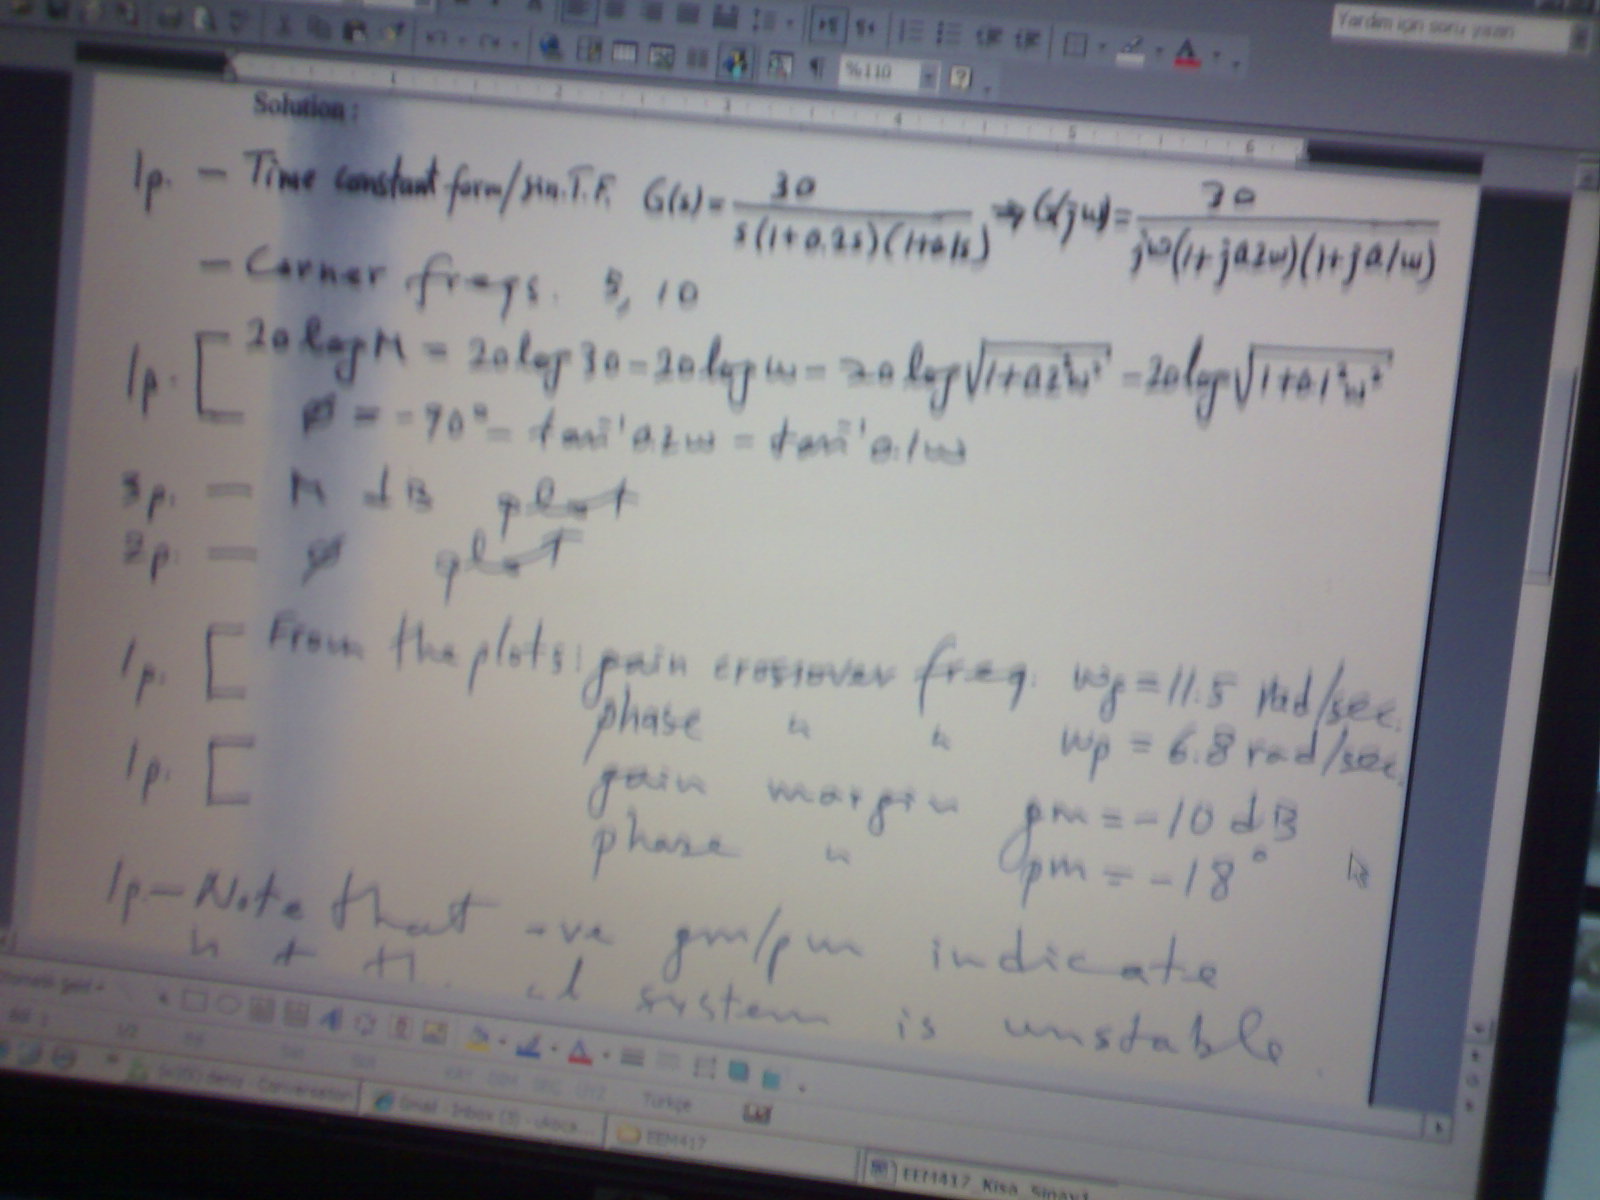 Yardım için soru yazın
%110
1 2 3 4 5 6
Solution :
1p. — Time constant form/sin.T.F. G(s)= 30 / s(1+0.2s)(1+0.1s) ⇒ G(jw)= 30 / jw(1+j0.2w)(1+j0.1w)
— Corner freqs. 5, 10
1p. [ 20 log M = 20 log 30 - 20 log w - 20 log √1+0.2²w² - 20 log √1+0.1²w²
ø = -90° - tan⁻¹ 0.2w - tan⁻¹ 0.1w
3p. — M dB plot
2p. — ø plot
1p. [ From the plots: gain crossover freq. wg = 11.5 rad/sec.
phase " " wp = 6.8 rad/sec.
1p. [ gain margin gm = -10 dB
phase " pm = -18°
1p — Note that -ve gm/pm indicate
system is unstable.
Türkçe
Conversation
Gmail - Inbox (3) -
EEM417
EEM417_Kisa_Sinav1